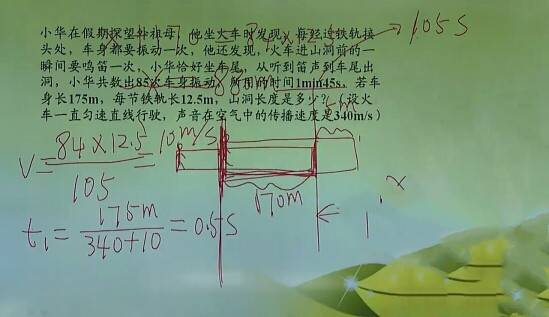 小华在假期探望外祖母，他坐火车时发现，每经过铁轨接
头处，车身都要振动一次，他还发现，火车进山洞前的一
瞬间要鸣笛一次，小华恰好坐车尾，从听到笛声到车尾出
洞，小华共数出85次车身振动，所用的时间1min45s，若车
身长175m，每节铁轨长12.5m，山洞长度是多少？（设火
车一直匀速直线行驶，声音在空气中的传播速度是340m/s）
→105s
5m
V=84×12.5/105=10m/s
170m
x
t₁=175m/340+10=0.5s